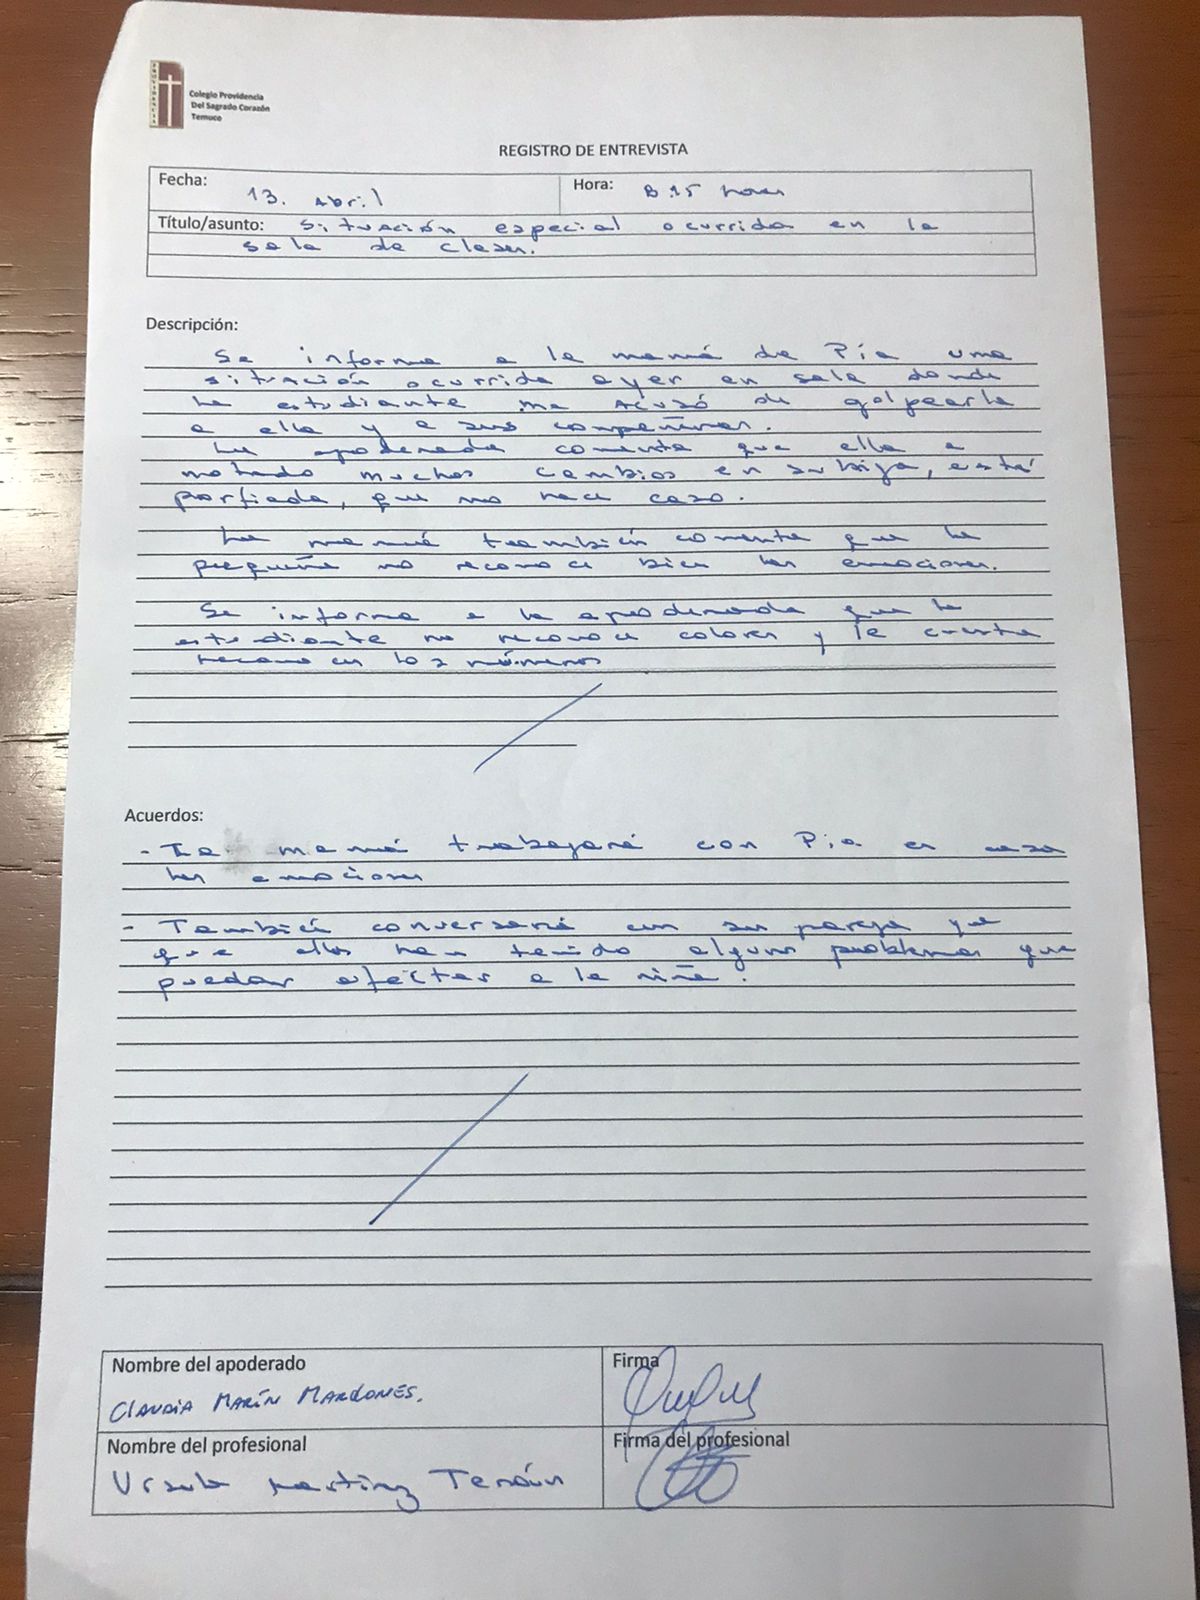 PROVIDENCIA
Colegio Providencia
Del Sagrado Corazón
Temuco
REGISTRO DE ENTREVISTA
Fecha: 13. Abril
Hora: 8:15 horas
Título/asunto: Situación especial ocurrida en la
sala de clases.
Descripción:
Se informa a la mamá de Pía una
situación ocurrida ayer en sala donde
la estudiante me acusó de golpearla
a ella y a sus compañeros.
La apoderada comenta que ella a
notado muchos cambios en su hija, está
porfiada, que no hace caso.
La mamá también comenta que la
pequeña no reconoce bien las emociones.
Se informa a la apoderada que la
estudiante no reconoce colores y le cuesta
reconocer los números
Acuerdos:
- La mamá trabajará con Pía en casa
las emociones
- También conversará con su pareja ya
que ellos han tenido algunos problemas que
puedan afectar a la niña.
Nombre del apoderado
Firma
Claudia Marín Mardones.
Nombre del profesional
Firma del profesional
Ursula Martínez